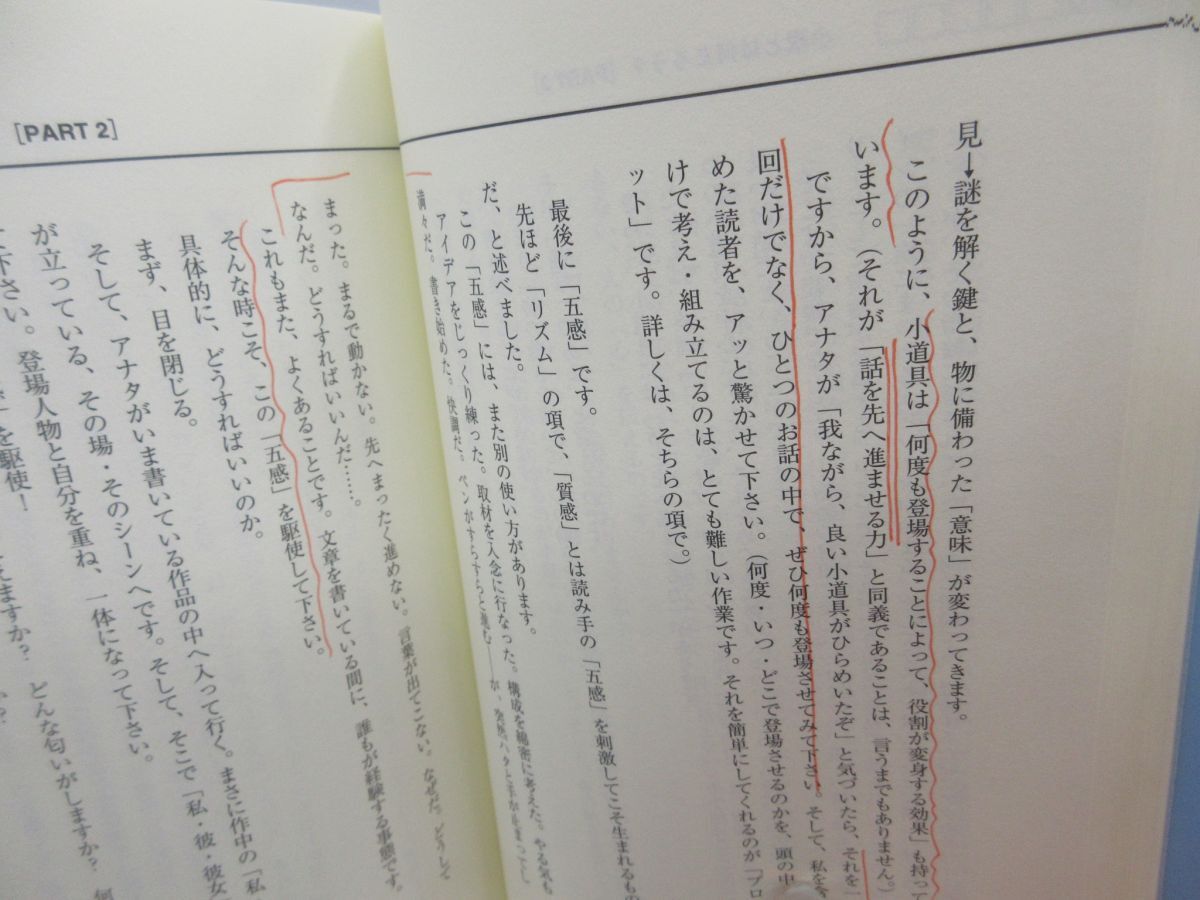 見→謎を解く鍵と、物に備わった「意味」が変わってきます。
このように、小道具は「何度も登場することによって、役割が変身する効果」も持って
います。（それが「話を先へ進ませる力」と同義であることは、言うまでもありません。）
ですから、アナタが「我ながら、良い小道具がひらめいたぞ」と気づいたら、それを一
回だけでなく、ひとつのお話の中で、ぜひ何度も登場させてみて下さい。そして、私を含
めた読者を、アッと驚かせて下さい。（何度・いつ・どこで登場させるのかを、頭の中
けで考え・組み立てるのは、とても難しい作業です。それを簡単にしてくれるのが「プロ
ット」です。詳しくは、そちらの項で。）
最後に「五感」です。
先ほど「リズム」の項で、「質感」とは読み手の「五感」を刺激してこそ生まれるもの
だ、と述べました。
この「五感」には、また別の使い方があります。
アイデアをじっくり練った。取材を入念に行なった。構成を綿密に考えた。やる気も
満々だ。書き始めた。快調だ。ペンがすらすらと進む――が、突然ハタと手が止まってし
[PART 2]
まった。まるで動かない。先へまったく進めない。言葉が出てこない。なぜだ。どうして
なんだ。どうすればいいんだ……。
これもまた、よくあることです。文章を書いている間に、誰もが経験する事態です。
そんな時こそ、この「五感」を駆使して下さい。
具体的に、どうすればいいのか。
まず、目を閉じる。
そして、アナタがいま書いている作品の中へ入って行く。まさに作中の「私
が立っている、その場・そのシーンへです。そして、そこで「私・彼・彼女
下さい。登場人物と自分を重ね、一体になって下さい。
を駆使！
えますか？　どんな匂いがしますか？　何